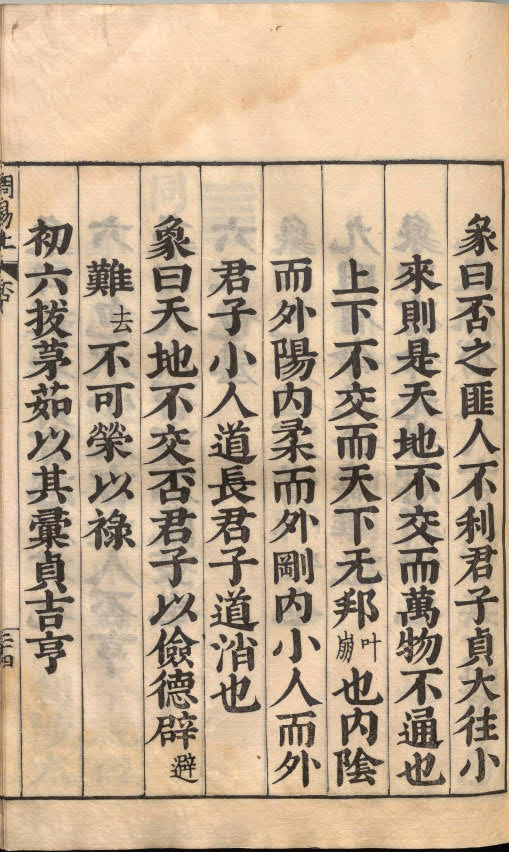 彖曰否之匪人不利君子貞大往小
來則是天地不交而萬物不通也
上下不交而天下无邦叶崩也内陰
而外陽内柔而外剛内小人而外
君子小人道長君子道消也
象曰天地不交否君子以儉德辟避
難去不可榮以祿
初六拔茅茹以其彙貞吉亨
周易上 否 二十四